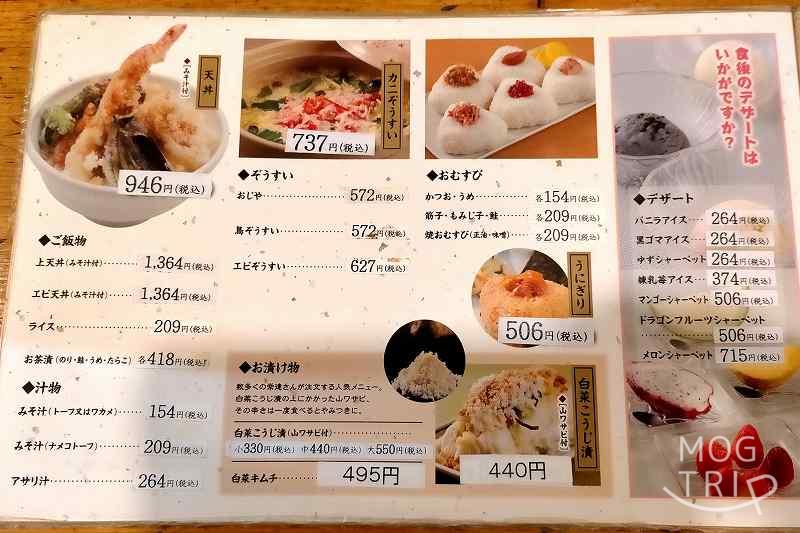 天丼
◆[みそ汁付]
946円(税込)
◆ご飯物
上天丼(みそ汁付)……… 1,364円(税込)
エビ天丼(みそ汁付)……… 1,364円(税込)
ライス……… 209円(税込)
お茶漬(のり・鮭・うめ・たらこ)… 各418円(税込)
◆汁物
みそ汁(トーフ又はワカメ)……… 154円(税込)
みそ汁(ナメコトーフ)……… 209円(税込)
アサリ汁……… 264円(税込)
カニぞうすい
737円(税込)
◆ぞうすい
おじや……… 572円(税込)
鳥ぞうすい……… 572円(税込)
エビぞうすい……… 627円(税込)
◆おむすび
かつお・うめ……… 各154円(税込)
筋子・もみじ子・鮭……… 各209円(税込)
焼おむすび(正油・味噌)…… 各209円(税込)
うにぎり
506円(税込)
◆お漬け物
数多くの常連さんが注文する人気メニュー。
白菜こうじ漬の上にかかった山ワサビ、
その辛さは一度食べるとやみつきに。
白菜こうじ漬(山ワサビ付)………
小330円(税込) 中440円(税込) 大550円(税込)
白菜キムチ……… 495円
白菜こうじ漬
◆[山ワサビ付]
440円
食後のデザートは
いかがですか?
◆デザート
バニラアイス… 264円(税込)
黒ゴマアイス… 264円(税込)
ゆずシャーベット 264円(税込)
練乳苺アイス… 374円(税込)
マンゴーシャーベット 506円(税込)
ドラゴンフルーツシャーベット
506円(税込)
メロンシャーベット 715円(税込)
MOG
TRIP